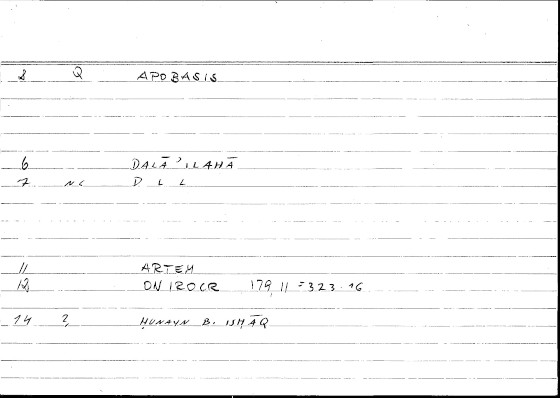 8 Q APOBASIS
6 DALĀ'ILAHĀ
7 NC D L L
11 ARTEM
12 ONIROCR 179,11 = 323.16
14 2, ḤUNAYN B. ISḤĀQ